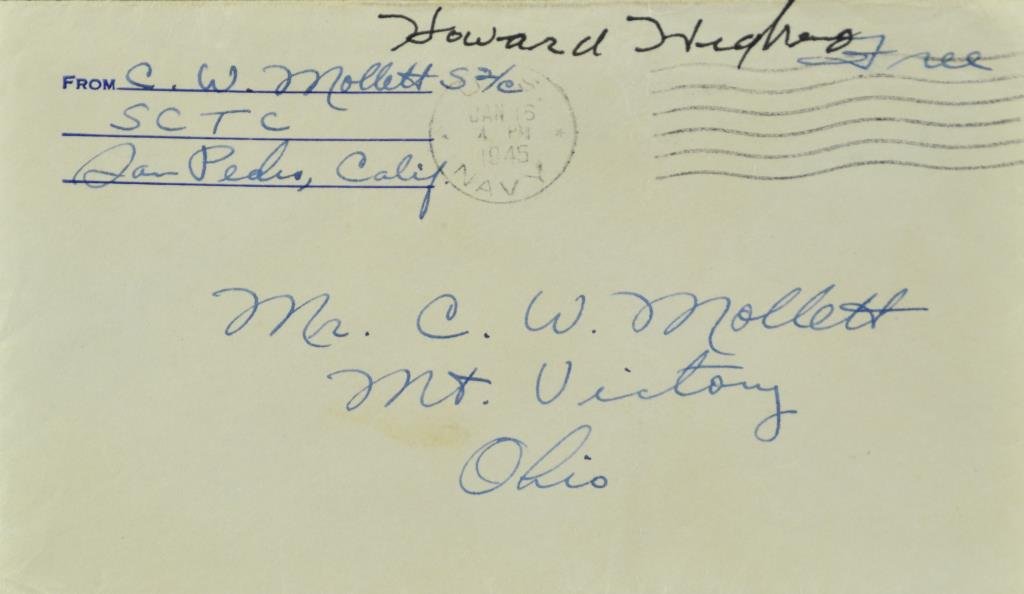 Howard Hughes Free
FROM C. W. Mollett S 2/c
SCTC
San Pedro, Calif.
U.S.
JAN 15
4 PM
1945
NAVY
Mr. C. W. Mollett
Mt. Victory
Ohio